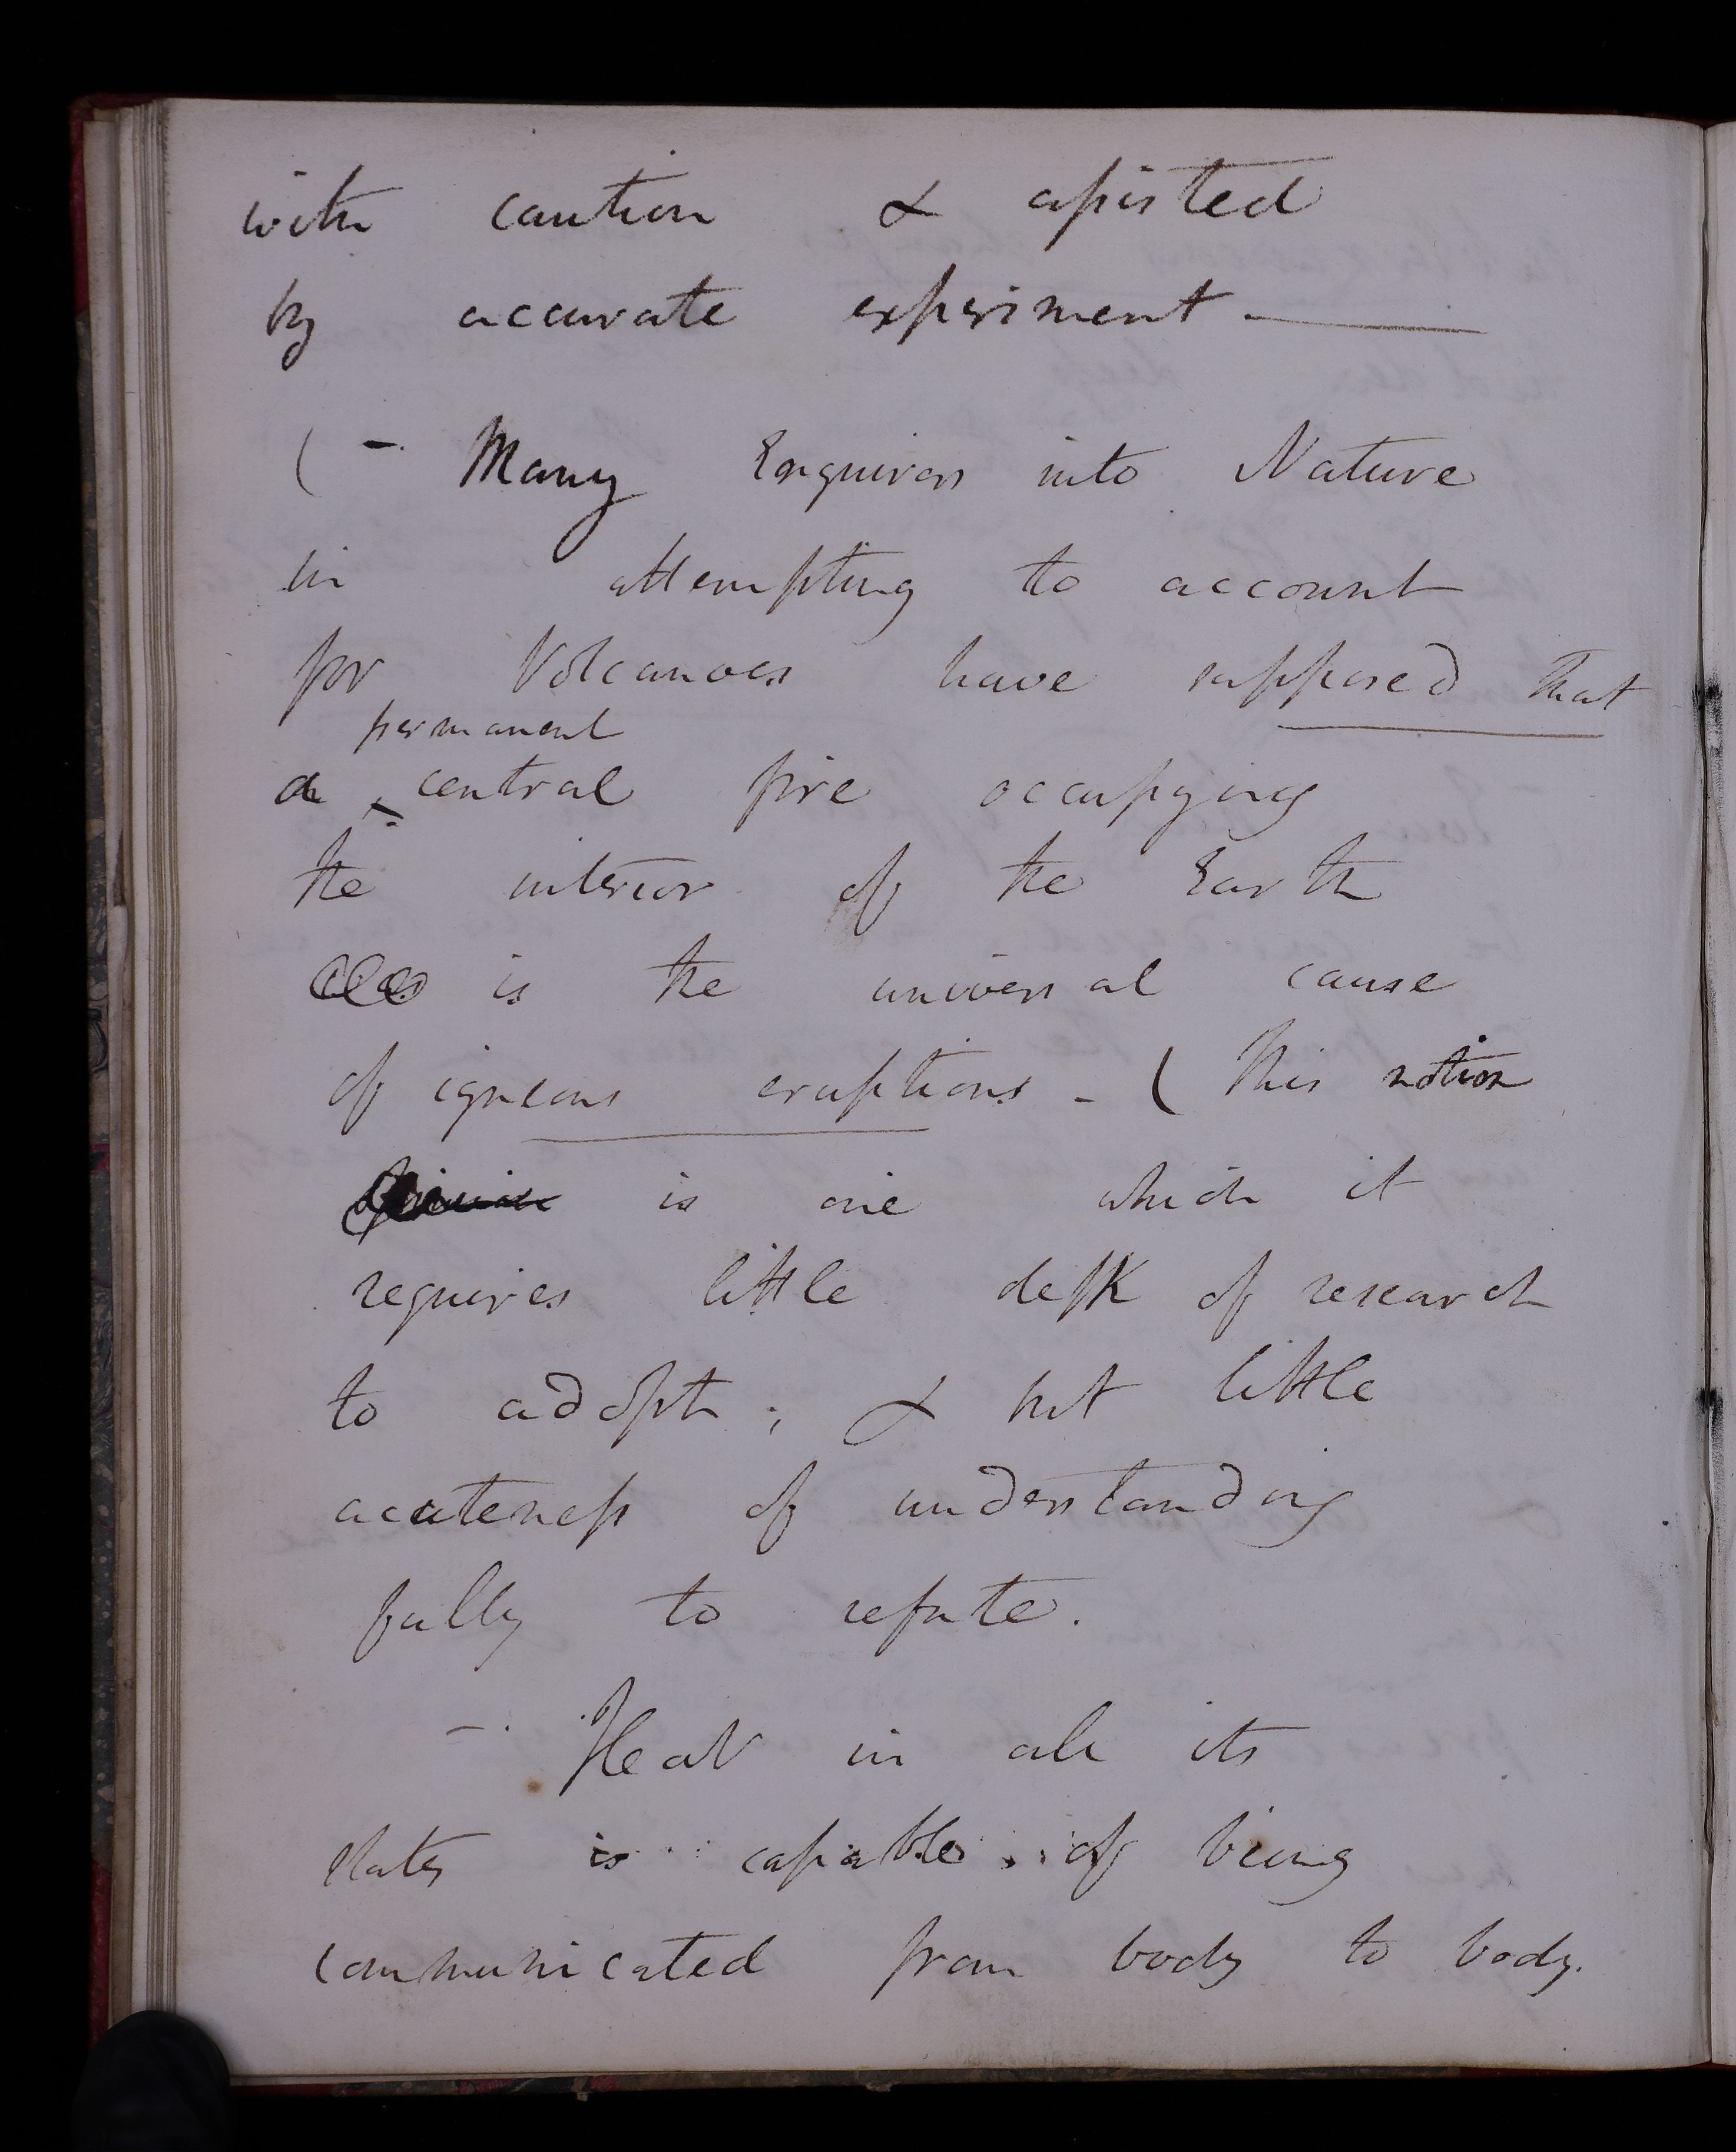 with caution & assisted
by accurate experiment. —
( –. Many Enquirers into Nature
in attempting to account
for Volcanoes have supposed that
permanent
a ‸ central fire occupying
the interior of the Earth
is the universal cause
of igneous eruptions – ( This notion
is one which it
requires little depth of research
to adopt; & not little
acuteness of understanding
fully to refute.
–. Heat in all its
states is capable of being
communicated from body to body.